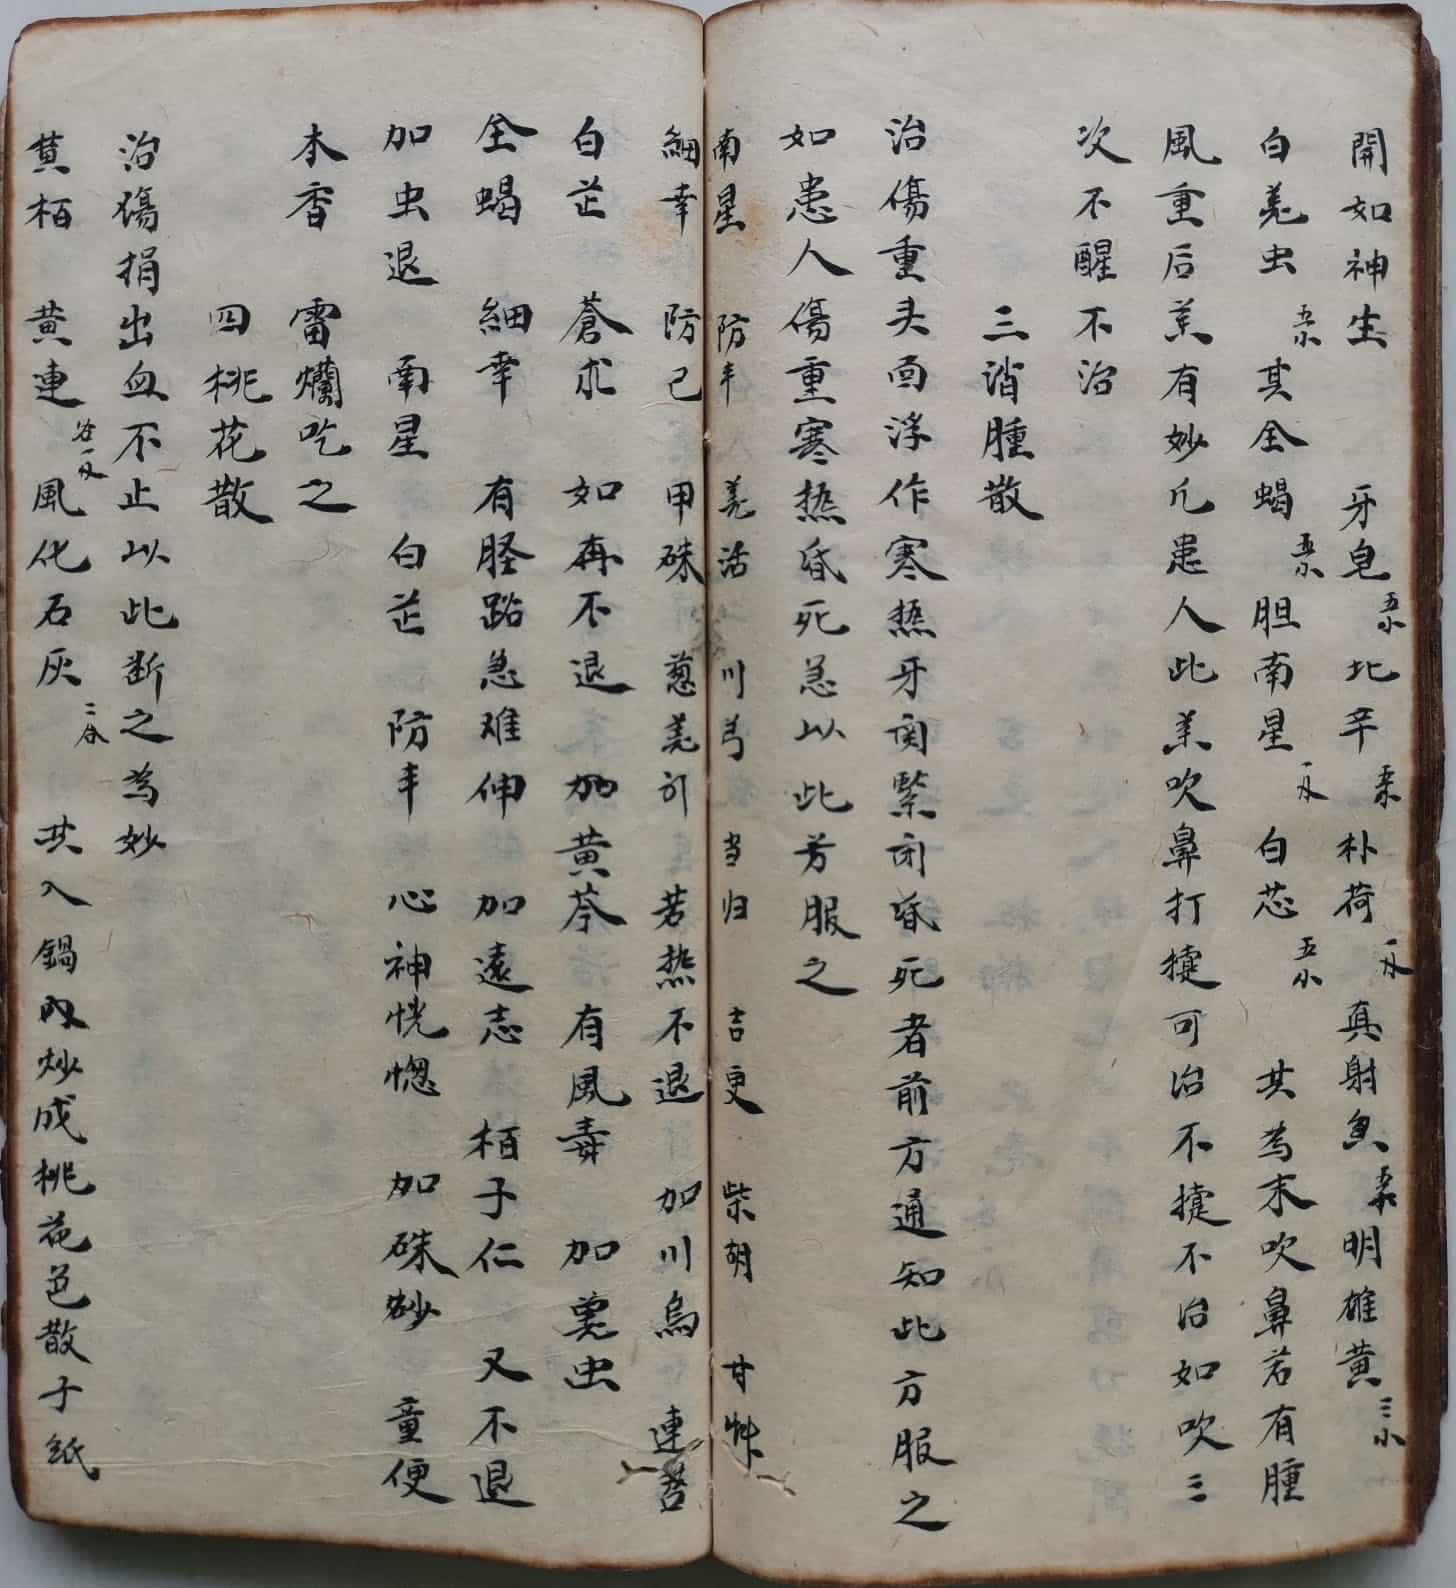 開如神生 牙皂五小 北辛五小 朴荷一水 真射魚五小 明雄黄三小
白羗虫五小 其全蝎五小 胆南星一水 白芯五小 共為末吹鼻若有腫
風重后羔有妙凢患人此羔吹鼻打㨗可治不㨗不治如吹三
次不醒不治
三消腫散
治傷重头面浮作寒热牙関緊闭昏死者前方通知此方服之
如患人傷重寒热昏死急以此方服之
南星 防丰 羗活 川芎 当归 吉更 柴胡 甘艸
細辛 防己 甲硃 葱羗引 若热不退 加川烏 連苔
白芷 蒼朮 如再不退 加黄芩 有風毒 加羗虫
全蝎 細辛 有胫路急难伸 加遠志 柏子仁 又不退
加虫退 南星 白芷 防丰 心神恍惚 加硃砂 童便
木香 雷爛吃之
四桃花散
治傷捐出血不止以此断之為妙
黄栢 黄連 風化石灰 共入鍋内炒成桃花色散子紙